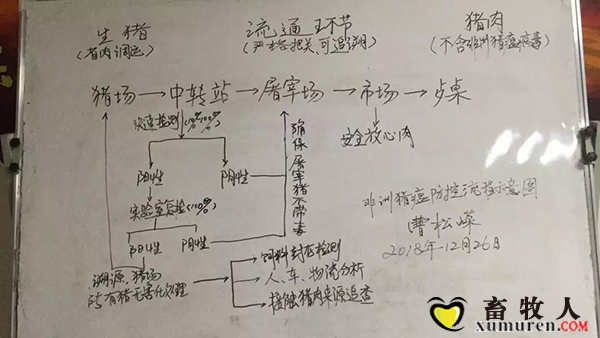 生猪
流通环节
猪肉
(省内调运)
(严格把关,可追溯)
(不含非洲猪瘟病毒)
猪场→中转站→屠宰场→市场→桌
快速检测(100%)
确保屠宰猪不带毒
安全放心肉
阳性
阴性
实验室复检(100%)
阳性
阴性
溯源,猪场
所有猪无害化处理
饲料封存检测
人、车、物流分析
接触猪肉来源追查
非洲猪瘟防控流程示意图
曹松嵘
2018年12月26日
畜牧人
xumuren.com